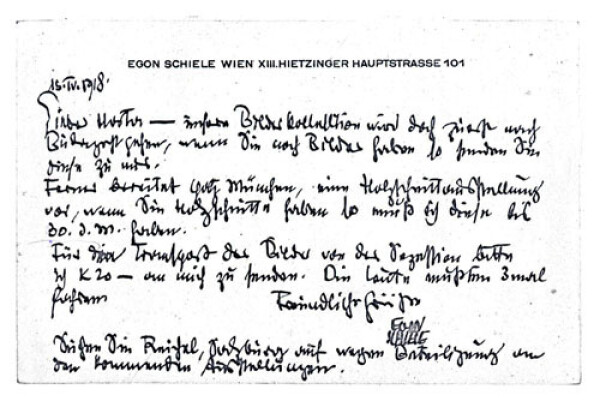 EGON SCHIELE WIEN XIII. HIETZINGER HAUPTSTRASSE 101
15. IV. 1918.
Lieber – unsere Bilderkollektion wird doch zuerst nach
Budapest gehen, wenn Sie noch Bilder haben so senden Sie
diese zu uns.
Ferner bereitet München, eine Holzschnittausstellung
vor, wenn Sie Holzschnitte haben so muß ich diese bis
30. d. M. haben.
Für den Transport der Bilder von der Sezession bitte
ich K 20 – an mich zu senden. Die Leute mußten 3 mal
fahren. Freundliche Grüße
EGON
SCHIELE
Suchen Sie Reichel, Salzburg auf wegen Beteiligung an
den kommenden Ausstellungen.